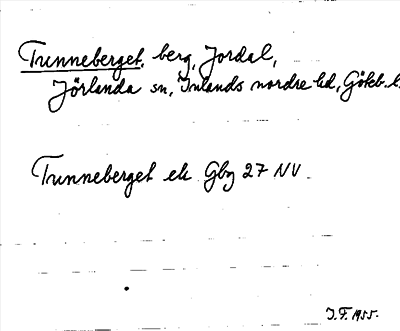 Tunneberget, berg, Jordal,
Jörlanda sn, Inlands nordre hd, Göteb. l.
Tunneberget ek Gbg 27 NV.
J.F. 1955.